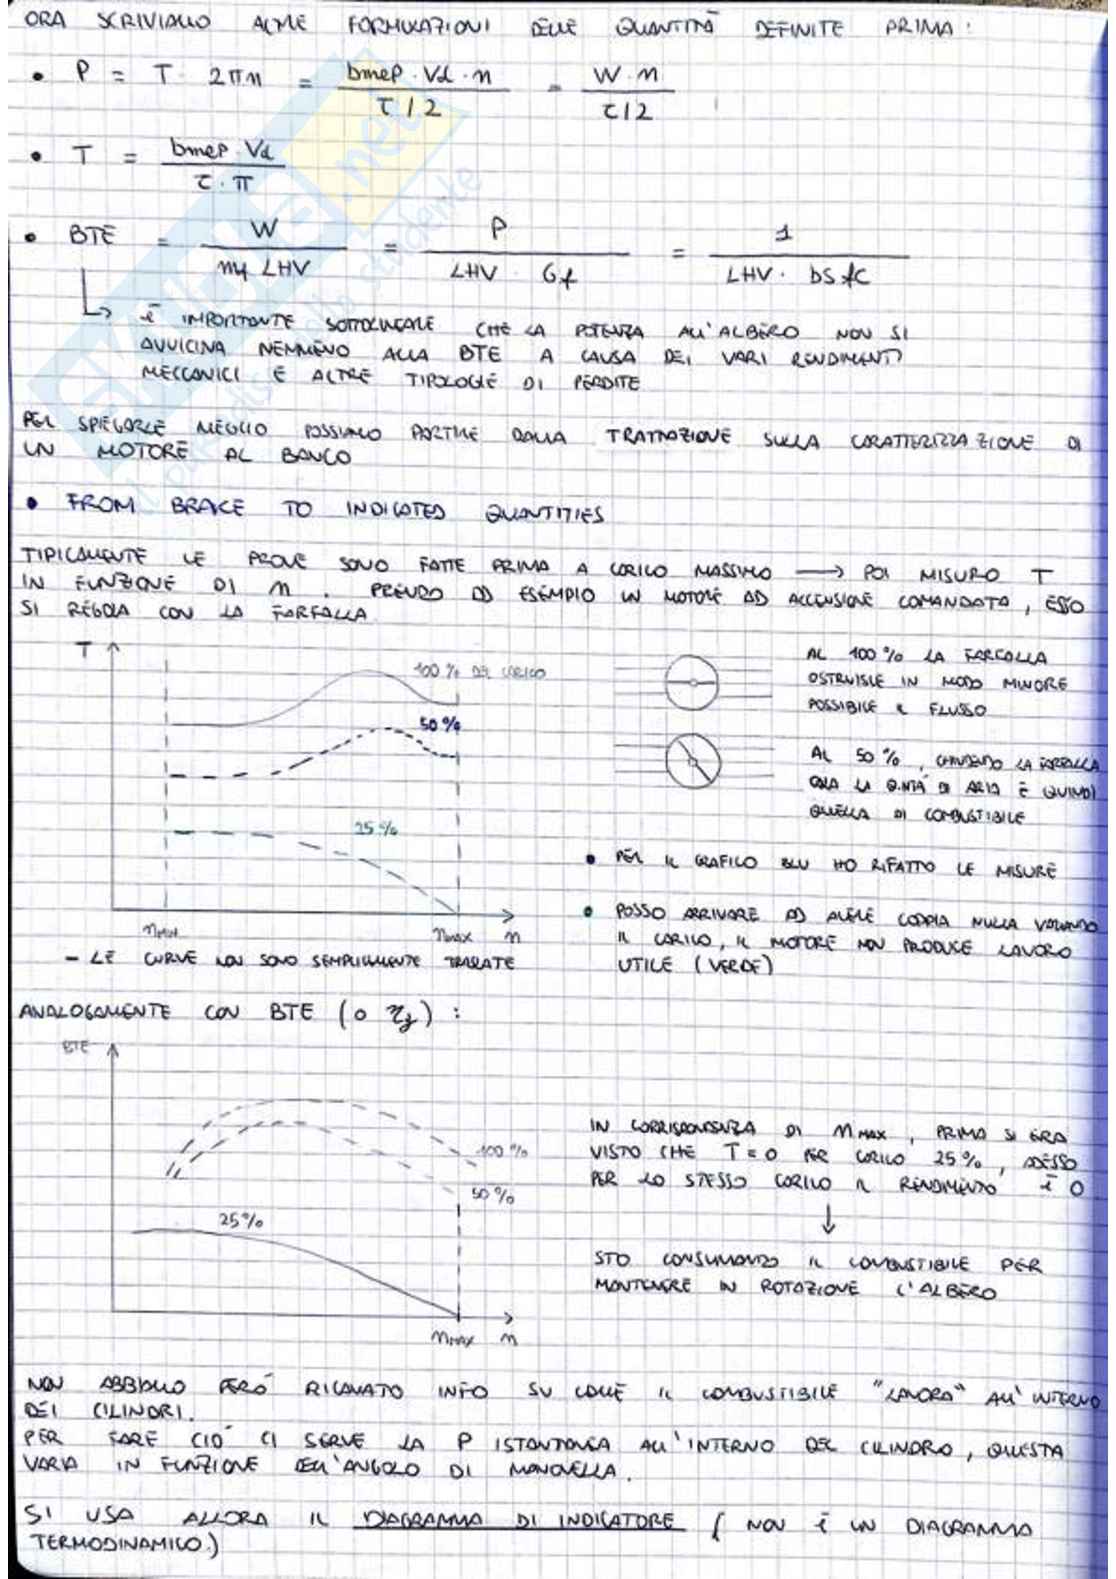 ORA SCRIVIAMO ALTRE FORMULAZIONI DELLE QUANTITÀ DEFINITE PRIMA:
• P = T · 2πn = bmep · Vd · n / τ/2 = W · n / τ/2
• T = bmep · Vd / τ · π
• BTE = W / mf LHV = P / LHV · Gf = 1 / LHV · bsfc
↳ È IMPORTANTE SOTTOLINEARE CHE LA POTENZA ALL'ALBERO NON SI
AVVICINA NEMMENO ALLA BTE A CAUSA DEI VARI RENDIMENTI
MECCANICI E ALTRE TIPOLOGIE DI PERDITE
PER SPIEGARLE MEGLIO POSSIAMO PARTIRE DALLA TRATTAZIONE SULLA CARATTERIZZAZIONE DI
UN MOTORE AL BANCO
• FROM BRAKE TO INDICATED QUANTITIES
TIPICAMENTE LE PROVE SONO FATTE PRIMA A CARICO MASSIMO → POI MISURO T
IN FUNZIONE DI n. PRENDO AD ESEMPIO UN MOTORE AD ACCENSIONE COMANDATA, ESSO
SI REGOLA CON LA FARFALLA
T
100 % DEL CARICO
50 %
25 %
nmin
nmax n
AL 100 % LA FARFALLA
OSTRUISCE IN MODO MINORE
POSSIBILE IL FLUSSO
AL 50 %, CHIUDENDO LA FARFALLA
CALA LA Q.NTÀ DI ARIA E QUINDI
QUELLA DI COMBUSTIBILE
• PER IL GRAFICO BLU HO RIFATTO LE MISURE
• POSSO ARRIVARE AD AVERE COPPIA NULLA VARIANDO
IL CARICO, IL MOTORE NON PRODUCE LAVORO
UTILE (VERDE)
- LE CURVE NON SONO SEMPLICEMENTE TRASLATE
ANALOGAMENTE CON BTE (o ηg):
BTE
100 %
50 %
25 %
nmax n
IN CORRISPONDENZA DI nmax, PRIMA SI ERA
VISTO CHE T = 0 PER CARICO 25 %, ADESSO
PER LO STESSO CARICO IL RENDIMENTO È 0
↓
STO CONSUMANDO IL COMBUSTIBILE PER
MANTENERE IN ROTAZIONE L'ALBERO
NON ABBIAMO PERÒ RICAVATO INFO SU COME IL COMBUSTIBILE "LAVORA" ALL'INTERNO
DEI CILINDRI.
PER FARE CIÒ CI SERVE LA P ISTANTANEA ALL'INTERNO DEL CILINDRO, QUESTA
VARIA IN FUNZIONE DELL'ANGOLO DI MANOVELLA.
SI USA ALLORA IL DIAGRAMMA DI INDICATORE ( NON È UN DIAGRAMMA
TERMODINAMICO)